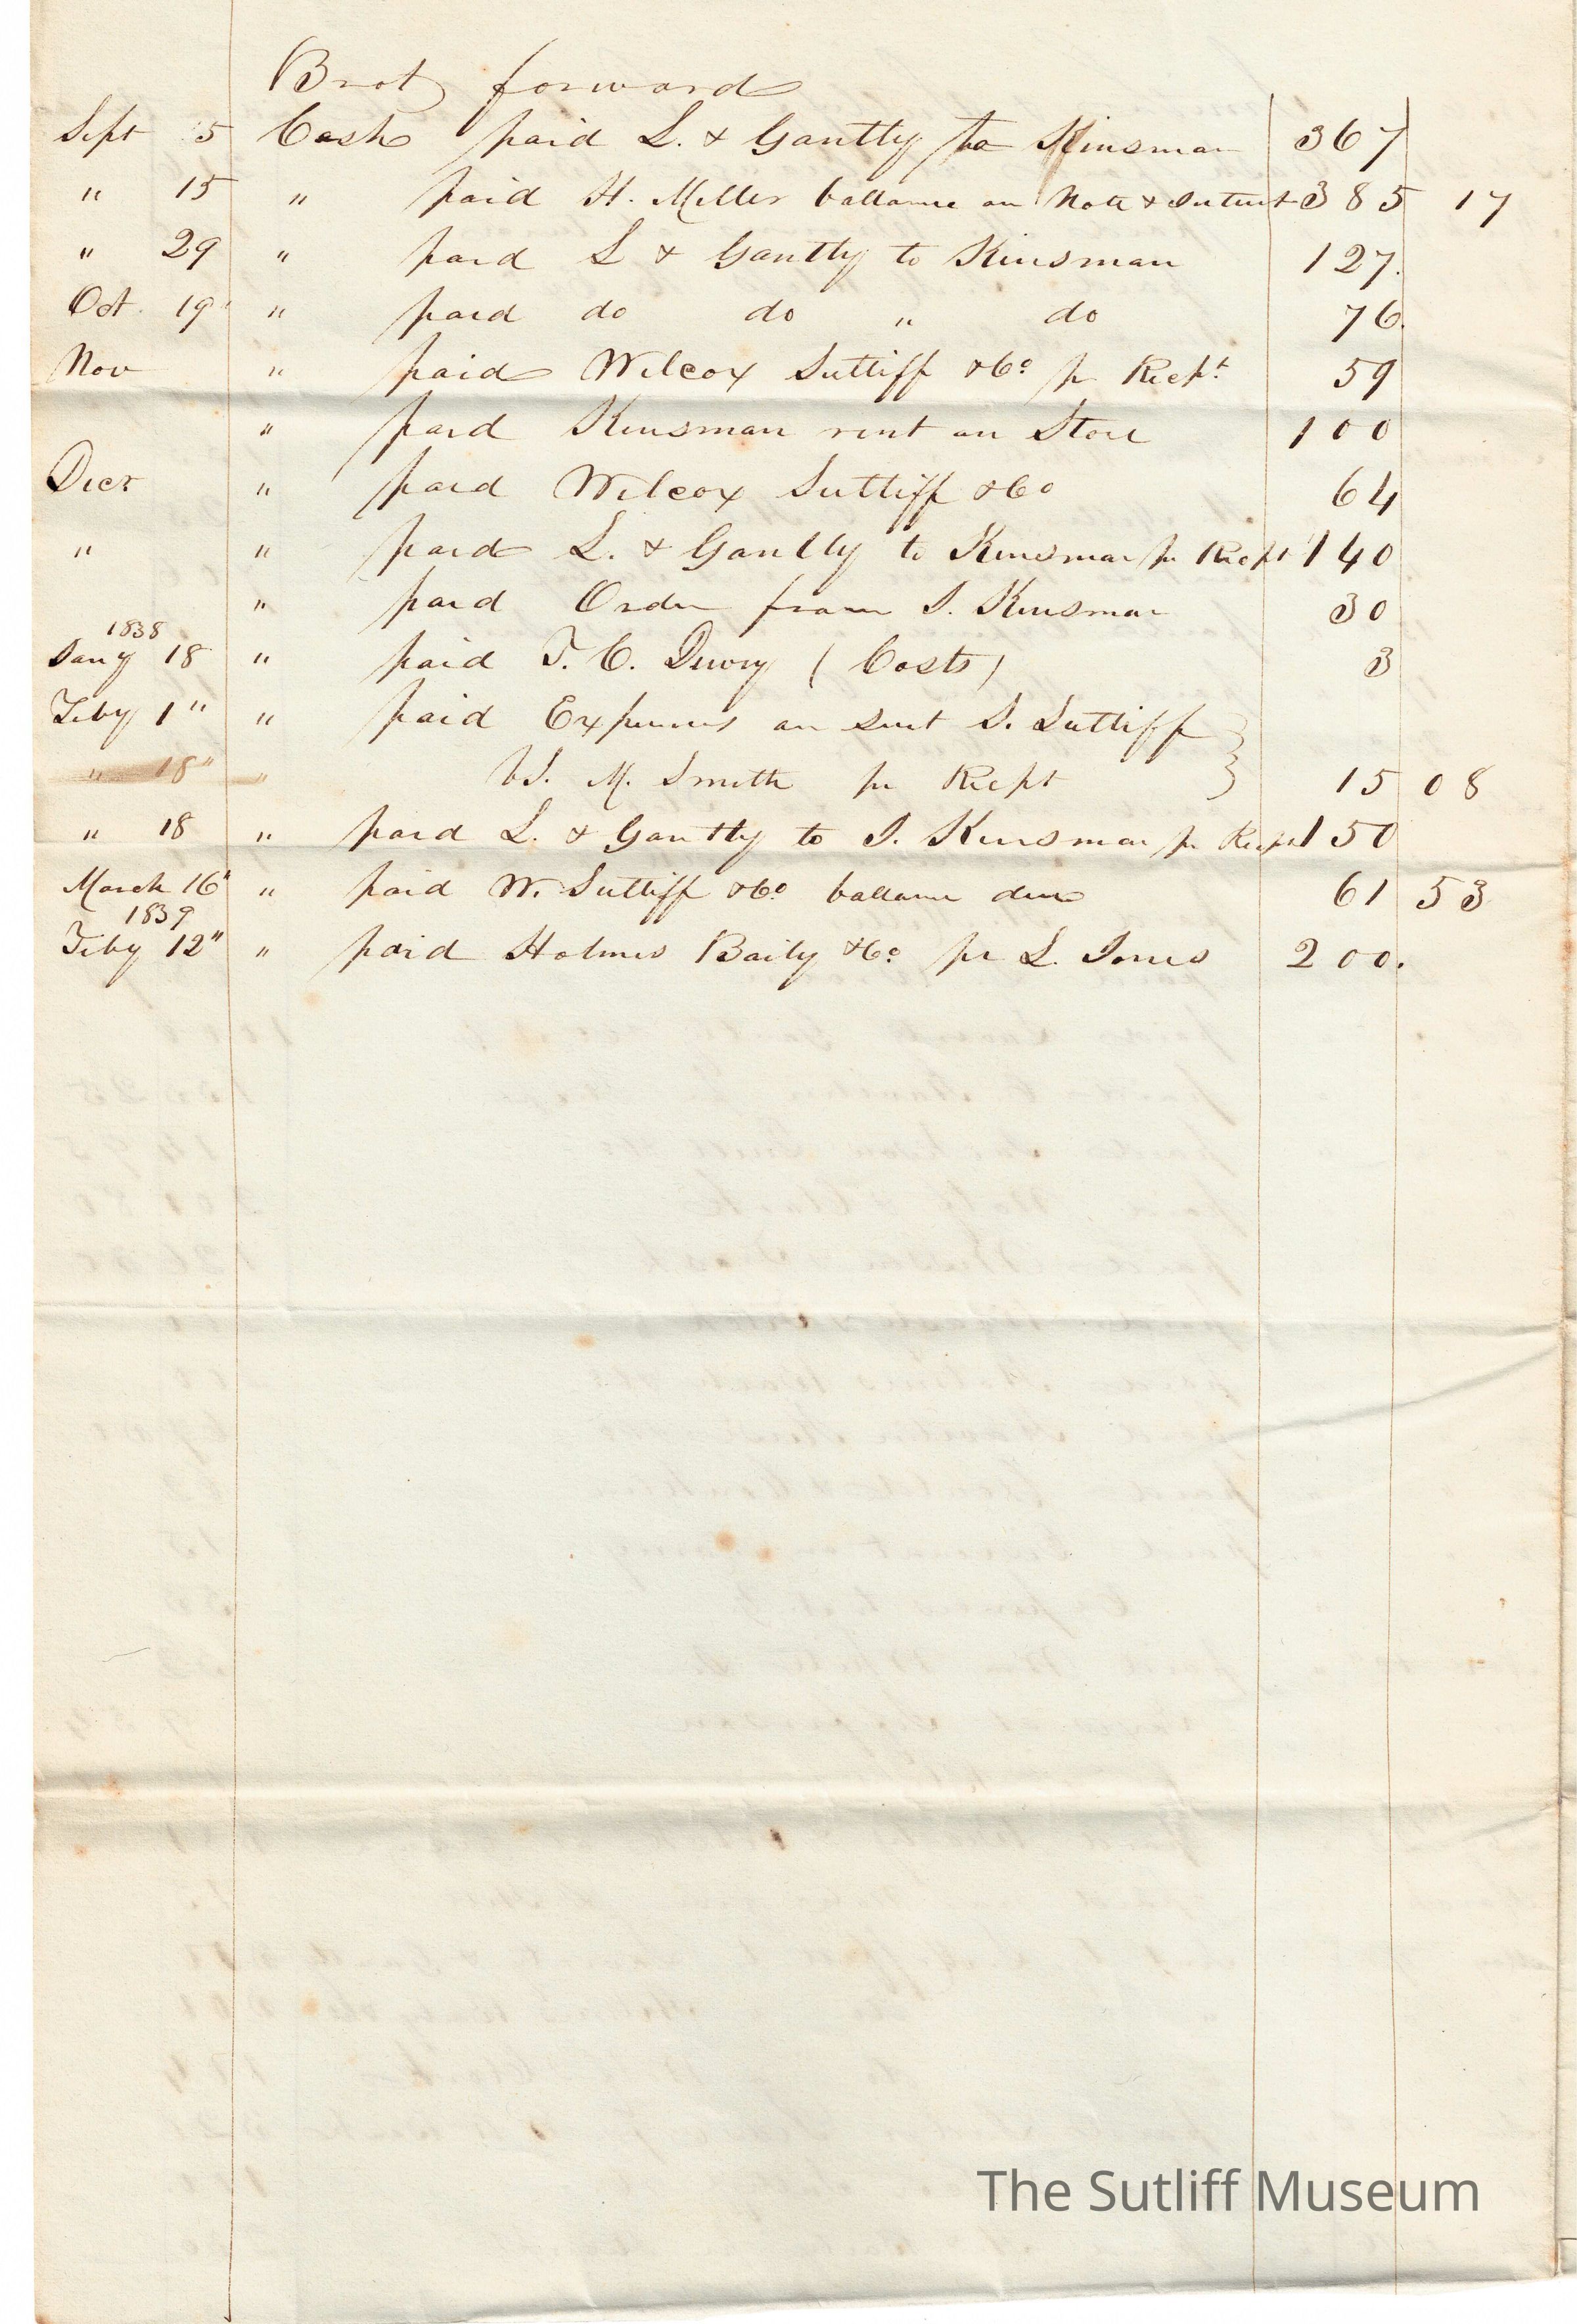 Brot forward
Sept 5 Cash paid L. & Gantly to Kinsman 367
" 15 " paid H. Miller ballance on Note & Interest 385 17
" 29 " paid L & Gantly to Kinsman 127.
Oct. 19 " paid do do " do 76.
Nov " paid Wilcox Sutliff & Co pr Recpt 59
" paid Kinsman rent on Store 100
Decr " paid Wilcox Sutliff & Co 64
" " paid L. & Gantly to Kinsman pr Recpt 140
" paid Order from J. Kinsman 30
1838
Jany 18 " paid T. C. Dewy (Costs) 3
Feby 1" " paid Expenses on suit S. Sutliff
" 18" " vs. M. Smith pr Recpt 15 08
" 18 " paid L. & Gantly to J. Kinsman pr Recpt 150
March 16" " paid W. Sutliff & Co. ballance due 61 53
1839
Feby 12" " paid Holmes Baily & Co. pr L. Jones 200.
The Sutliff Museum